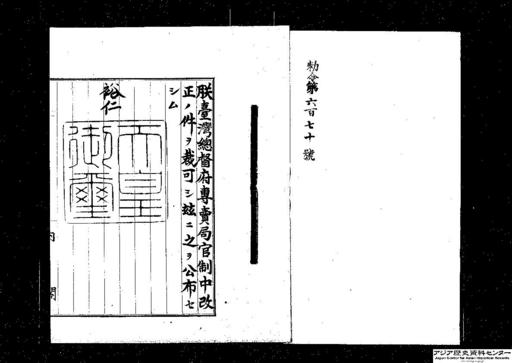 勅令第六百七十號
朕臺灣總督府專賣局官制中改
正ノ件ヲ裁可シ玆ニ之ヲ公布セ
シム
裕仁
天皇
御璽
内閣
アジア歴史資料センター
Japan Center for Asian Historical Records